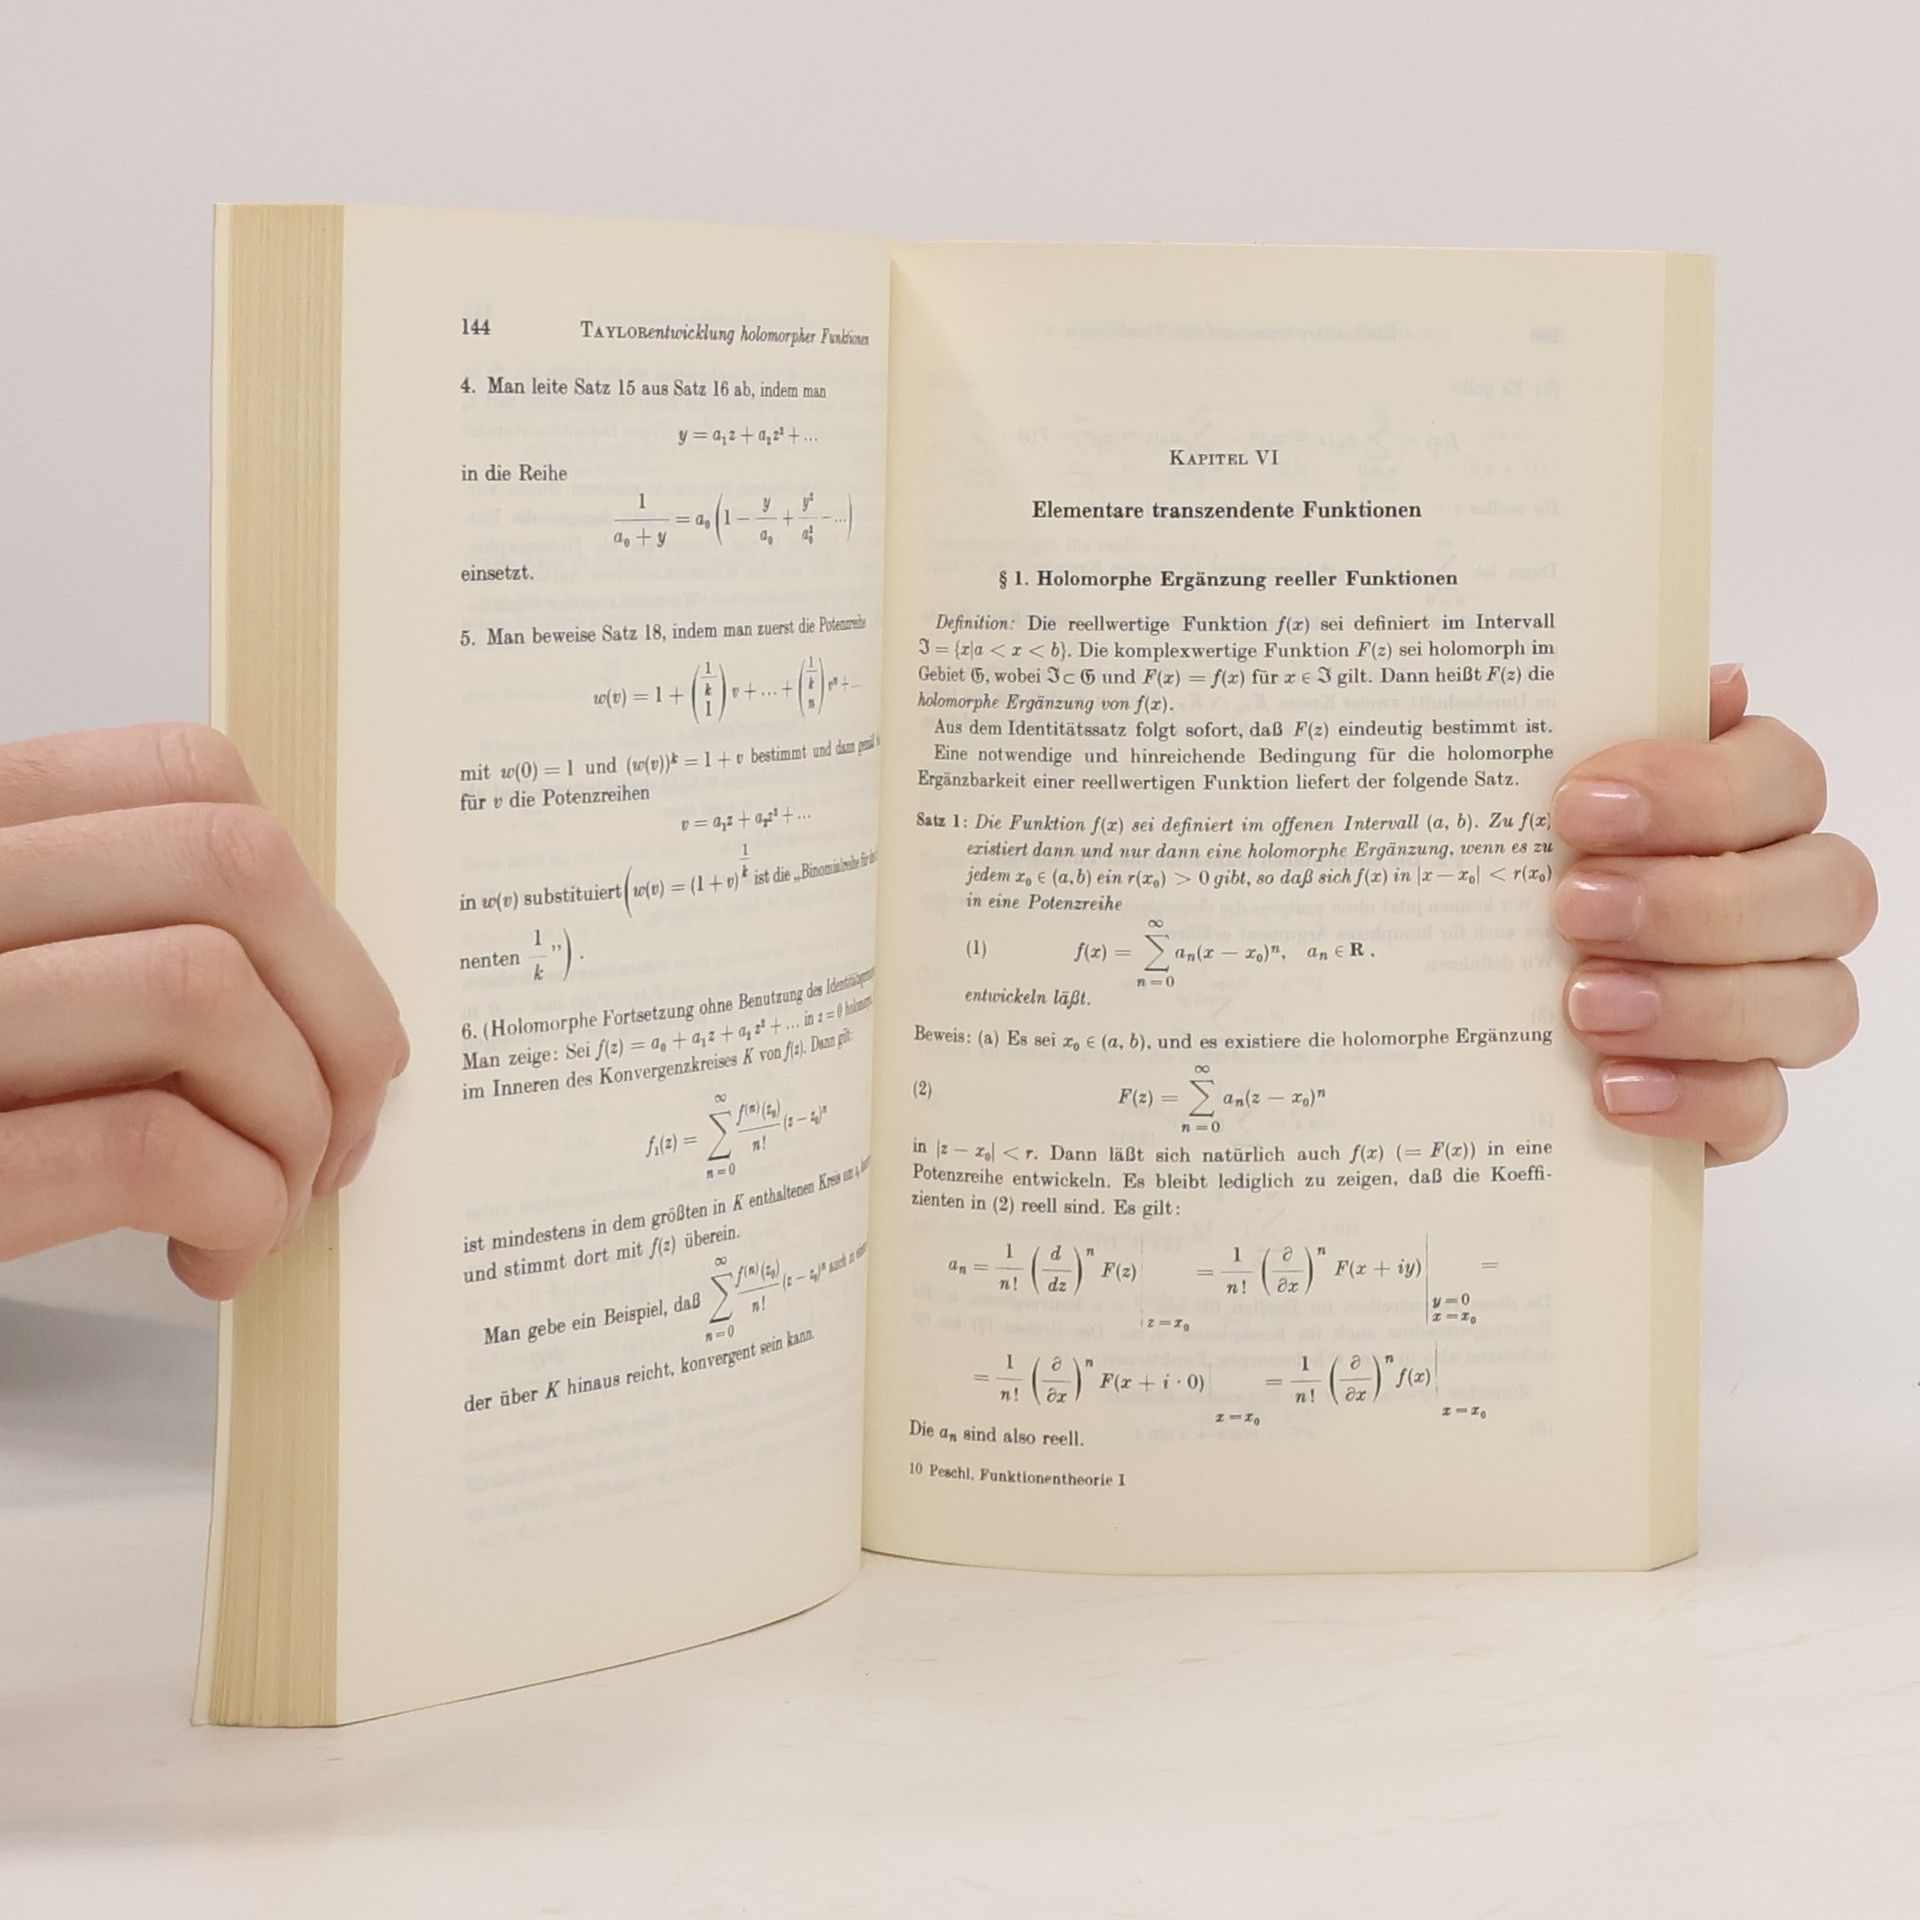 144 TAYLORentwicklung holomorpher Funktionen
4. Man leite Satz 15 aus Satz 16 ab, indem man
y = a₁z + a₂z² + ...
in die Reihe
1/(a₀ + y) = a₀ (1 − y/a₀ + y²/a₀² − ...)
einsetzt.
5. Man beweise Satz 18, indem man zuerst die Potenzreihe
w(v) = 1 + (1/k über 1) v + ... + (1/k über n) vⁿ + ...
mit w(0) = 1 und (w(v))ᵏ = 1 + v bestimmt und dann gemäß
für v die Potenzreihen
v = a₁z + a₂z² + ...
in w(v) substituiert (w(v) = (1 + v)^(1/k) ist die „Binomialreihe für
nenten 1/k”).
6. (Holomorphe Fortsetzung ohne Benutzung des
Man zeige: Sei f(z) = a₀ + a₁z + a₂z² + ... in z = 0
im Inneren des Konvergenzkreises K von f(z). Dann gilt:
f₁(z) = ∑_{n=0}^{∞} f⁽ⁿ⁾(z₀)/n! (z − z₀)ⁿ
ist mindestens in dem größten in K enthaltenen Kreis um z₀
und stimmt dort mit f(z) überein.
Man gebe ein Beispiel, daß ∑_{n=0}^{∞} f⁽ⁿ⁾(z₀)/n! (z − z₀)ⁿ auch in
der über K hinaus reicht, konvergent sein kann.
KAPITEL VI
Elementare transzendente Funktionen
§ 1. Holomorphe Ergänzung reeller Funktionen
Definition: Die reellwertige Funktion f(x) sei definiert im Intervall
ℑ = {x|a < x < b}. Die komplexwertige Funktion F(z) sei holomorph im
Gebiet 𝔊, wobei ℑ ⊂ 𝔊 und F(x) = f(x) für x ∈ ℑ gilt. Dann heißt F(z) die
holomorphe Ergänzung von f(x).
Aus dem Identitätssatz folgt sofort, daß F(z) eindeutig bestimmt ist.
Eine notwendige und hinreichende Bedingung für die holomorphe
Ergänzbarkeit einer reellwertigen Funktion liefert der folgende Satz.
Satz 1: Die Funktion f(x) sei definiert im offenen Intervall (a, b). Zu f(x)
existiert dann und nur dann eine holomorphe Ergänzung, wenn es zu
jedem x₀ ∈ (a, b) ein r(x₀) > 0 gibt, so daß sich f(x) in |x − x₀| < r(x₀)
in eine Potenzreihe
(1) f(x) = ∑_{n=0}^{∞} aₙ(x − x₀)ⁿ, aₙ ∈ R.
entwickeln läßt.
Beweis: (a) Es sei x₀ ∈ (a, b), und es existiere die holomorphe Ergänzung
(2) F(z) = ∑_{n=0}^{∞} aₙ(z − x₀)ⁿ
in |z − x₀| < r. Dann läßt sich natürlich auch f(x) (= F(x)) in eine
Potenzreihe entwickeln. Es bleibt lediglich zu zeigen, daß die Koeffi-
zienten in (2) reell sind. Es gilt:
aₙ = 1/n! (d/dz)ⁿ F(z)|_{z=x₀} = 1/n! (∂/∂x)ⁿ F(x + iy)|_{y=0, x=x₀} =
= 1/n! (∂/∂x)ⁿ F(x + i · 0)|_{x=x₀} = 1/n! (∂/∂x)ⁿ f(x)|_{x=x₀}
Die aₙ sind also reell.
10 Peschl, Funktionentheorie I